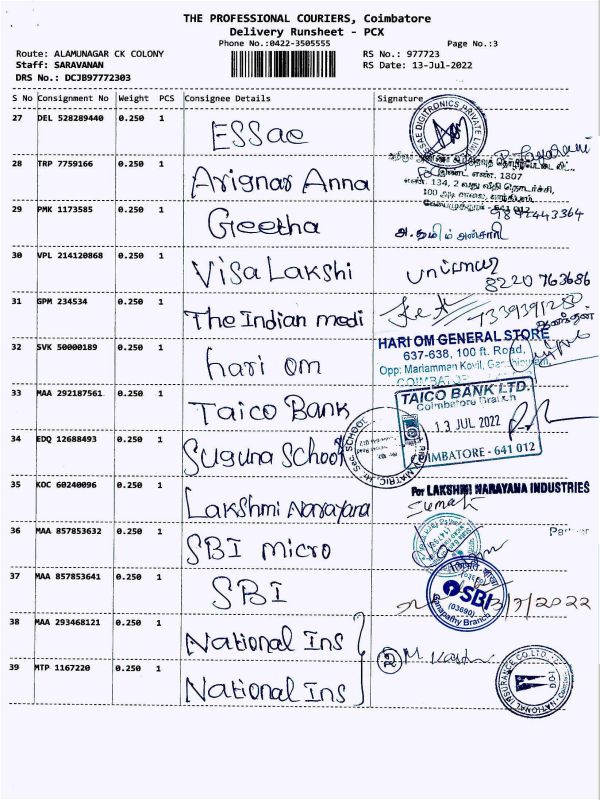 THE PROFESSIONAL COURIERS, Coimbatore
Delivery Runsheet - PCX
Phone No.:0422-3505555
Page No.:3
Route: ALAMUNAGAR CK COLONY
RS No.: 977723
Staff: SARAVANAN
RS Date: 13-Jul-2022
DRS No.: DCJB97772303
S No Consignment No Weight PCS Consignee Details Signature
27 DEL 528289440 0.250 1 ESSae
28 TRP 7759166 0.250 1 Arignar Anna
எண். 1807
எண். 134, 2 வது வீதி தொடர்ச்சி,
100 அடி சாலை, காந்திபுரம்,
கோயமுத்தூர் - 641 012
29 PMK 1173585 0.250 1 Geetha
30 VPL 214120868 0.250 1 Visa Lakshi
8220 763686
31 GPM 234534 0.250 1 The Indian medi
HARI OM GENERAL STORE
637-638, 100 ft. Road,
Opp: Mariamman Kovil, Gandhipuram,
32 SVK 50000189 0.250 1 hari om
33 MAA 292187561 0.250 1 Taico Bank
TAICO BANK LTD.
Coimbatore Branch
13 JUL 2022
COIMBATORE - 641 012
34 EDQ 12688493 0.250 1 Suguna School
35 KOC 60240096 0.250 1 Lakshmi Narayana
For LAKSHMI NARAYANA INDUSTRIES
Partner
36 MAA 857853632 0.250 1 SBI micro
37 MAA 857853641 0.250 1 SBI
SBI
(03690)
Ganapathy Branch
38 MAA 293468121 0.250 1 National Ins
39 MTP 1167220 0.250 1 National Ins